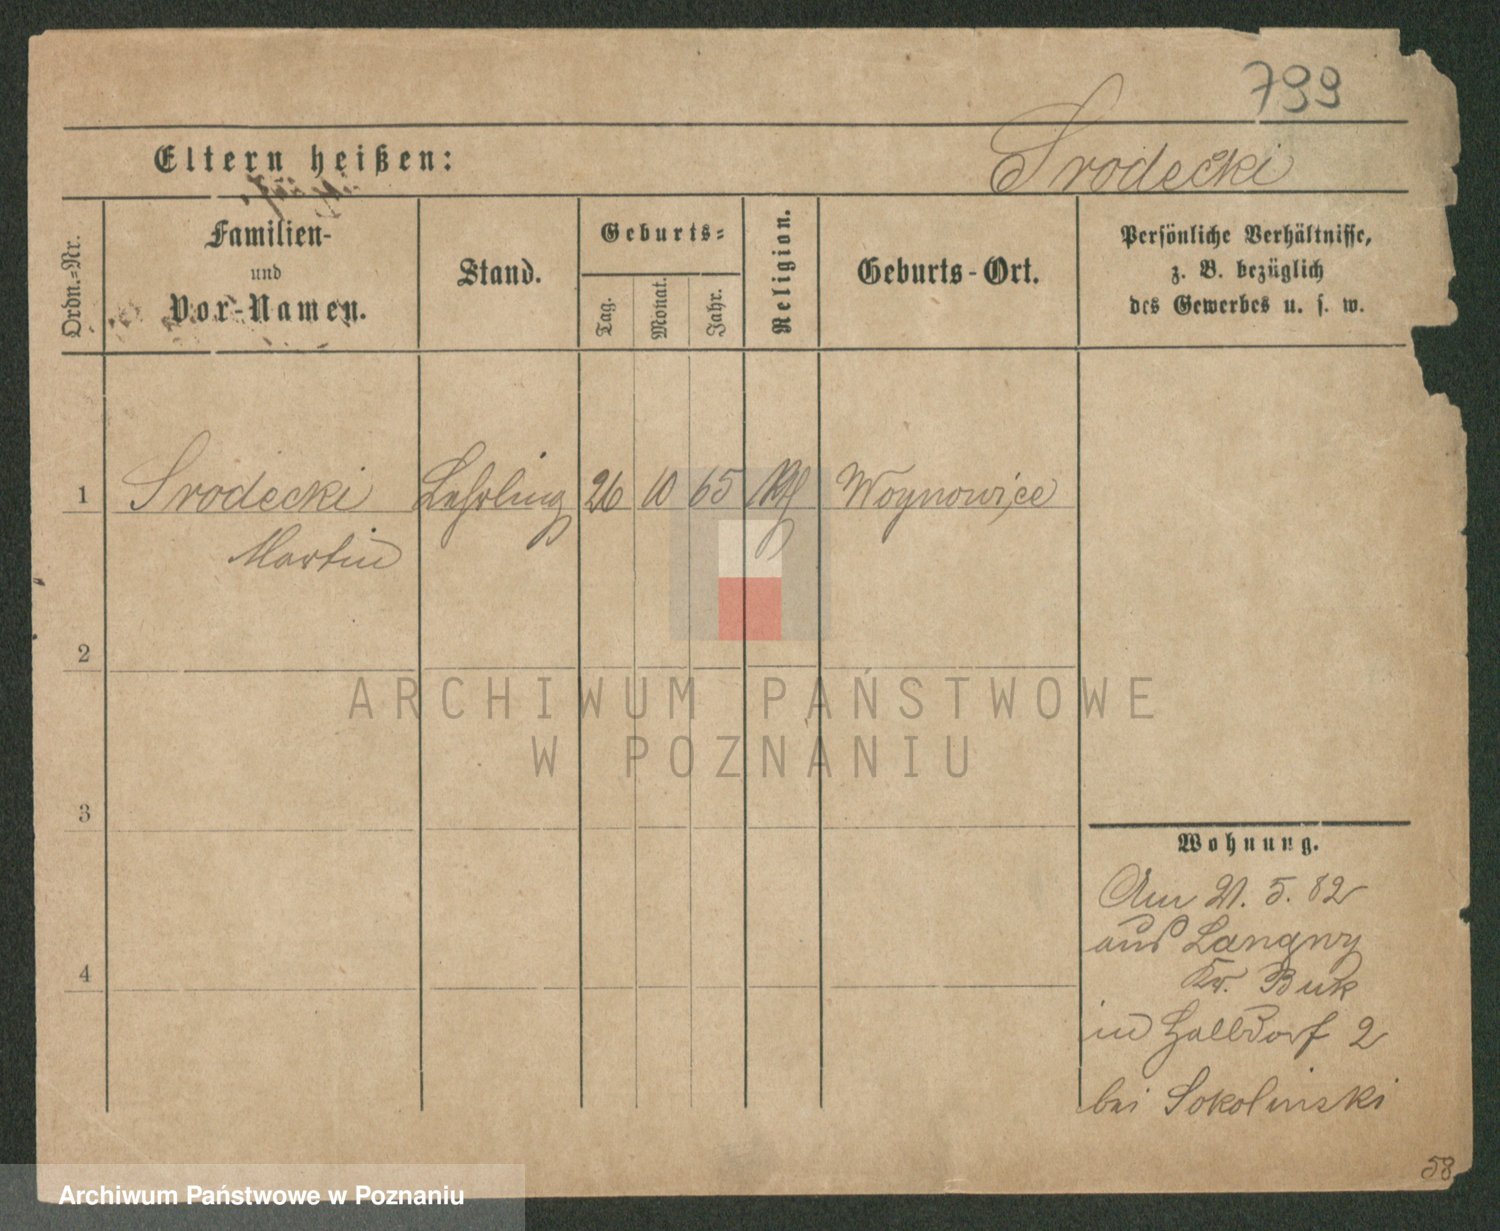 799
Eltern heißen:
Srodecki
Ordn.=Nr.
Familien-
und
Vor-Namen.
Stand.
Geburts=
Tag.
Monat.
Jahr.
Religion.
Geburts-Ort.
Persönliche Verhältnisse,
z. B. bezüglich
des Gewerbes u. s. w.
1 Srodecki Lehrling 26 10 65 Woynowice
Martin
2
ARCHIWUM PAŃSTWOWE
W POZNANIU
3
Wohnung.
Am 21. 5. 82
aus
Kr. Buk
4
in Halldorf 2
bei Sokolinski
58
Archiwum Państwowe w Poznaniu